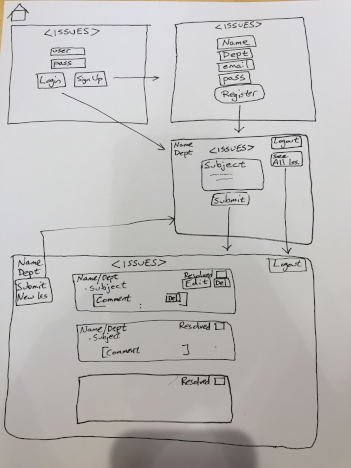 <ISSUES>
user
pass
Login
Sign Up
<ISSUES>
Name
Dept
email
pass
Register
Name
Dept
<ISSUES>
Logout
See
All Iss
Subject
Submit
Name
Dept
Submit
New Iss
<ISSUES>
Logout
Name/Dept
Resolved
- Subject
Edit
Del
[Comment
Del]
Name/Dept
Resolved
- Subject
[Comment ]
Resolved